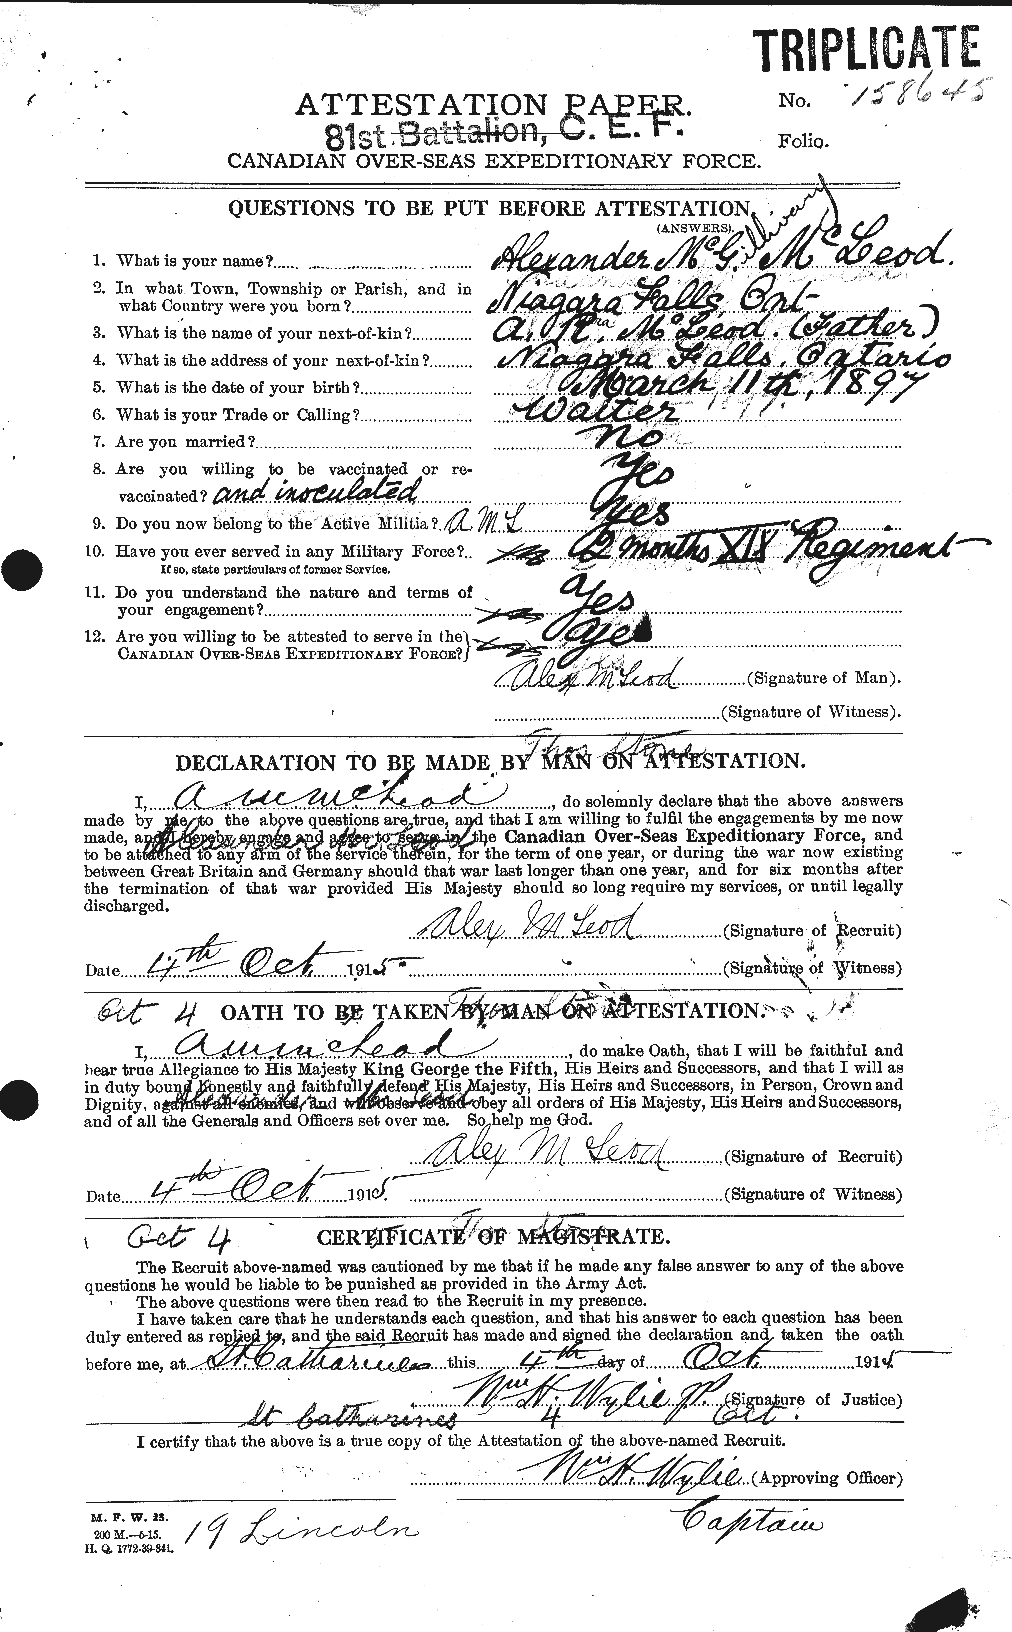 TRIPLICATE
No. 158645
ATTESTATION PAPER.
81st Battalion, C. E. F.
Folio.
CANADIAN OVER-SEAS EXPEDITIONARY FORCE.
QUESTIONS TO BE PUT BEFORE ATTESTATION.
(ANSWERS).
1. What is your name? Alexander McGillivary McLeod.
2. In what Town, Township or Parish, and in
what Country were you born? Niagara Falls, Ont-
3. What is the name of your next-of-kin? McLeod. (Father)
4. What is the address of your next-of-kin? Niagara Falls, Ontario
5. What is the date of your birth? March 11th, 1897
6. What is your Trade or Calling? Waiter
7. Are you married? No
8. Are you willing to be vaccinated or re-
vaccinated? and inoculated Yes
9. Do you now belong to the Active Militia? A.M.L Yes
10. Have you ever served in any Military Force? 2 months XIX Regiment
If so, state particulars of former Service.
11. Do you understand the nature and terms of
your engagement? Yes
12. Are you willing to be attested to serve in the
CANADIAN OVER-SEAS EXPEDITIONARY FORCE? Yes
Alex McLeod (Signature of Man).
(Signature of Witness).
Thos Stone
DECLARATION TO BE MADE BY MAN ON ATTESTATION.
I, McLeod, do solemnly declare that the above answers
made by me to the above questions are true, and that I am willing to fulfil the engagements by me now
made, and I hereby engage and agree to serve in the Canadian Over-Seas Expeditionary Force, and
to be attached to any arm of the service therein, for the term of one year, or during the war now existing
between Great Britain and Germany should that war last longer than one year, and for six months after
the termination of that war provided His Majesty should so long require my services, or until legally
discharged.
Alex McLeod (Signature of Recruit)
Date 4th Oct 1915 (Signature of Witness)
Oct 4 OATH TO BE TAKEN BY MAN ON ATTESTATION.
I, McLeod, do make Oath, that I will be faithful and
bear true Allegiance to His Majesty King George the Fifth, His Heirs and Successors, and that I will as
in duty bound honestly and faithfully defend His Majesty, His Heirs and Successors, in Person, Crown and
Dignity, against all enemies, and will observe and obey all orders of His Majesty, His Heirs and Successors,
and of all the Generals and Officers set over me. So help me God.
Alex McLeod (Signature of Recruit)
Date 4th Oct 1915 (Signature of Witness)
Oct 4 CERTIFICATE OF MAGISTRATE.
The Recruit above-named was cautioned by me that if he made any false answer to any of the above
questions he would be liable to be punished as provided in the Army Act.
The above questions were then read to the Recruit in my presence.
I have taken care that he understands each question, and that his answer to each question has been
duly entered as replied to, and the said Recruit has made and signed the declaration and taken the oath
before me, at St. Catharines this 4th day of Oct. 1915
Wm H. Wylie JP. (Signature of Justice)
St Catharines 4 Oct.
I certify that the above is a true copy of the Attestation of the above-named Recruit.
Wm H. Wylie (Approving Officer)
Captain
M. F. W. 23.
200 M.—6-15.
H. Q. 1772-39-841.
19 Lincoln